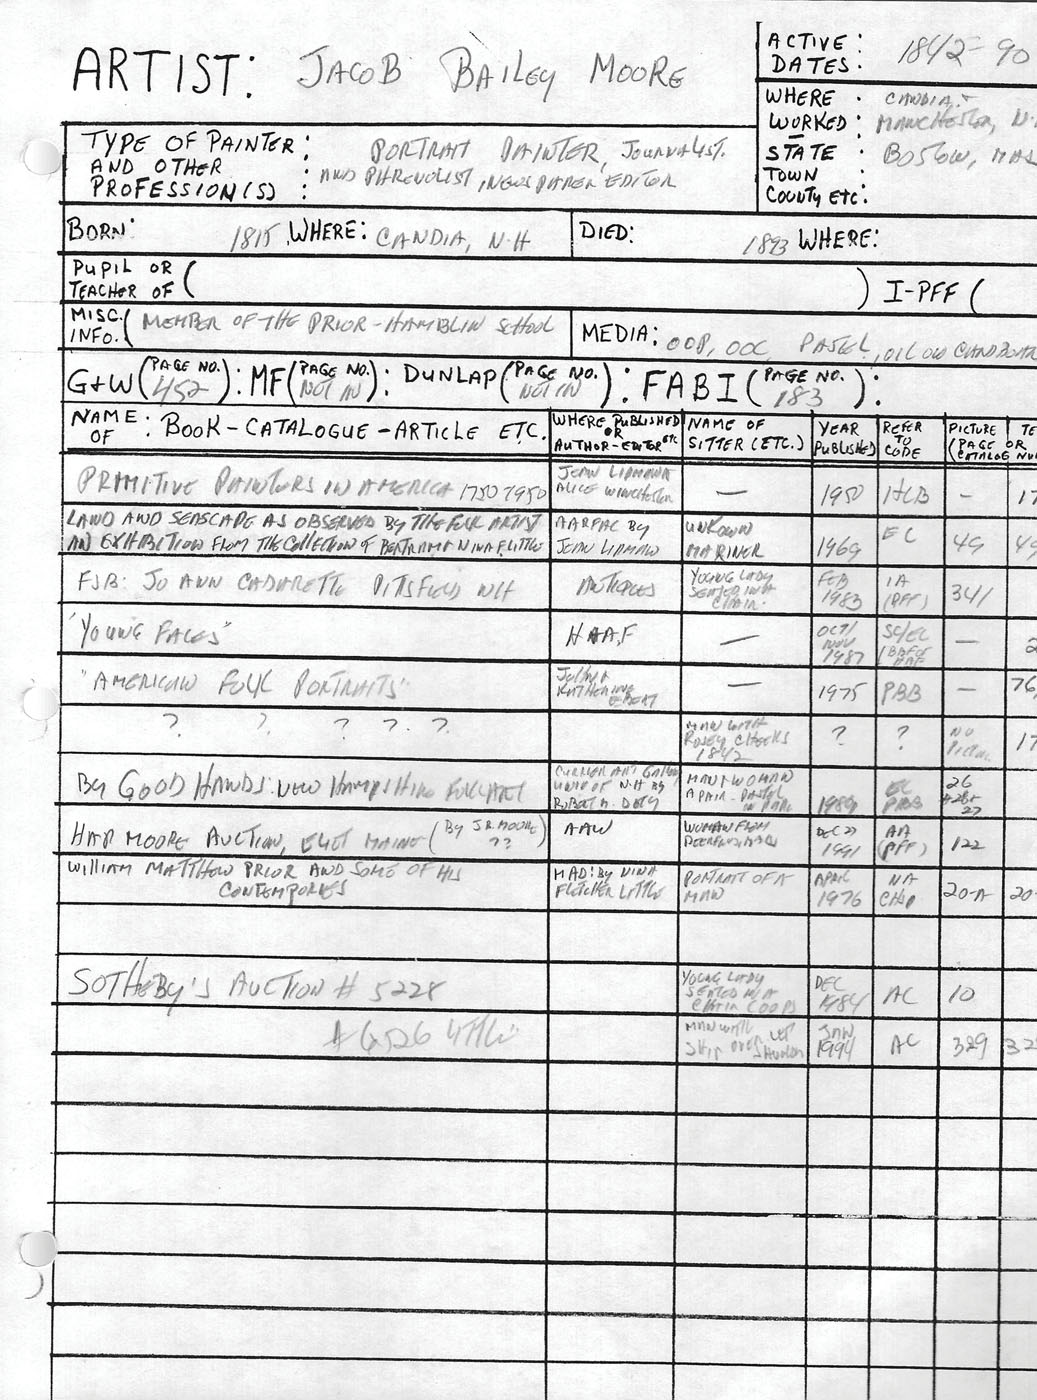 ARTIST: JACOB BAILEY MOORE
ACTIVE DATES: 1842-90
WHERE WORKED: CANDIA, +
MANCHESTER, N.
STATE TOWN COUNTY ETC: BOSTON, MAS
TYPE OF PAINTER AND OTHER PROFESSION(S): PORTRAIT PAINTER, JOURNALIST.
AND PHRENOLIST, NEWSPAPER EDITOR
BORN: 1815, WHERE: CANDIA, N.H
DIED: 1893 WHERE:
PUPIL OR TEACHER OF ( ) I-PFF (
MISC. INFO. ( MEMBER OF THE PRIOR-HAMBLIN SCHOOL
MEDIA: OOP, OOC, PASTEL, OIL ON CARDBOAR
G+W (PAGE NO. 452): MF (PAGE NO. NOT IN): DUNLAP (PAGE NO. NOT IN): FABI (PAGE NO. 183):
NAME OF: BOOK-CATALOGUE-ARTICLE ETC.
WHERE PUBLISHED OR AUTHOR-EDITOR ETC
NAME OF SITTER (ETC.)
YEAR PUBLISHED
REFER TO CODE
PICTURE TE
(PAGE OR
CATALOG NU
PRIMITIVE PAINTERS IN AMERICA 1750 1950 JEAN LIPMAN + ALICE WINCHESTER — 1950 HCB — 17
LAND AND SEASCAPE AS OBSERVED BY THE FOLK ARTIST
AN EXHIBITION FROM THE COLLECTION OF BERTRAM + NINA F. LITTLE AARFAC BY JEAN LIPMAN UNKOWN MARINER 1969 EC 49 49
FSB: JO ANN CADARETTE PITSFIELD NH ANTIQUES YOUNG LADY SEATED IN A CHAIR. FEB 1983 IA (PFF) 341
"YOUNG FACES" HAAF — OCT/NOV 1987 SC/EC — 2
"AMERICAN FOLK PORTRAITS" JULIA + KATHERINE EBERT — 1975 PBB — 76,
? ? ? ? ? MAN WITH ROSEY CHEEKS 1842 ? ? NO PICTURE 17
BY GOOD HANDS: NEW HAMPSHIRE FOLK ART CURRIER ART GALLERY UNIV OF N.H BY ROBERT M. DOTY MAN + WOMAN A PAIR - PASTEL ON PAPER 1989 EC PBB 26 #28+ 27
HAP MOORE AUCTION, ELIOT MAINE (BY J.B. MOORE) ?? AAW WOMAN FROM DEERFIELD DEC 27 1991 AA (PFF) 122
WILLIAM MATTHEW PRIOR AND SOME OF HIS
CONTEMPORIES MAD: BY NINA FLETCHER LITTLE PORTRAIT OF A MAN APRIL 1976 NA 20-A 20-
SOTHEBY'S AUCTION # 5228 YOUNG LADY SEATED IN A CHAIR DEC 1984 AC 10
# 6526 LITTLE MAN WITH SHIP OVER LEFT JAN 1994 AC 329 32